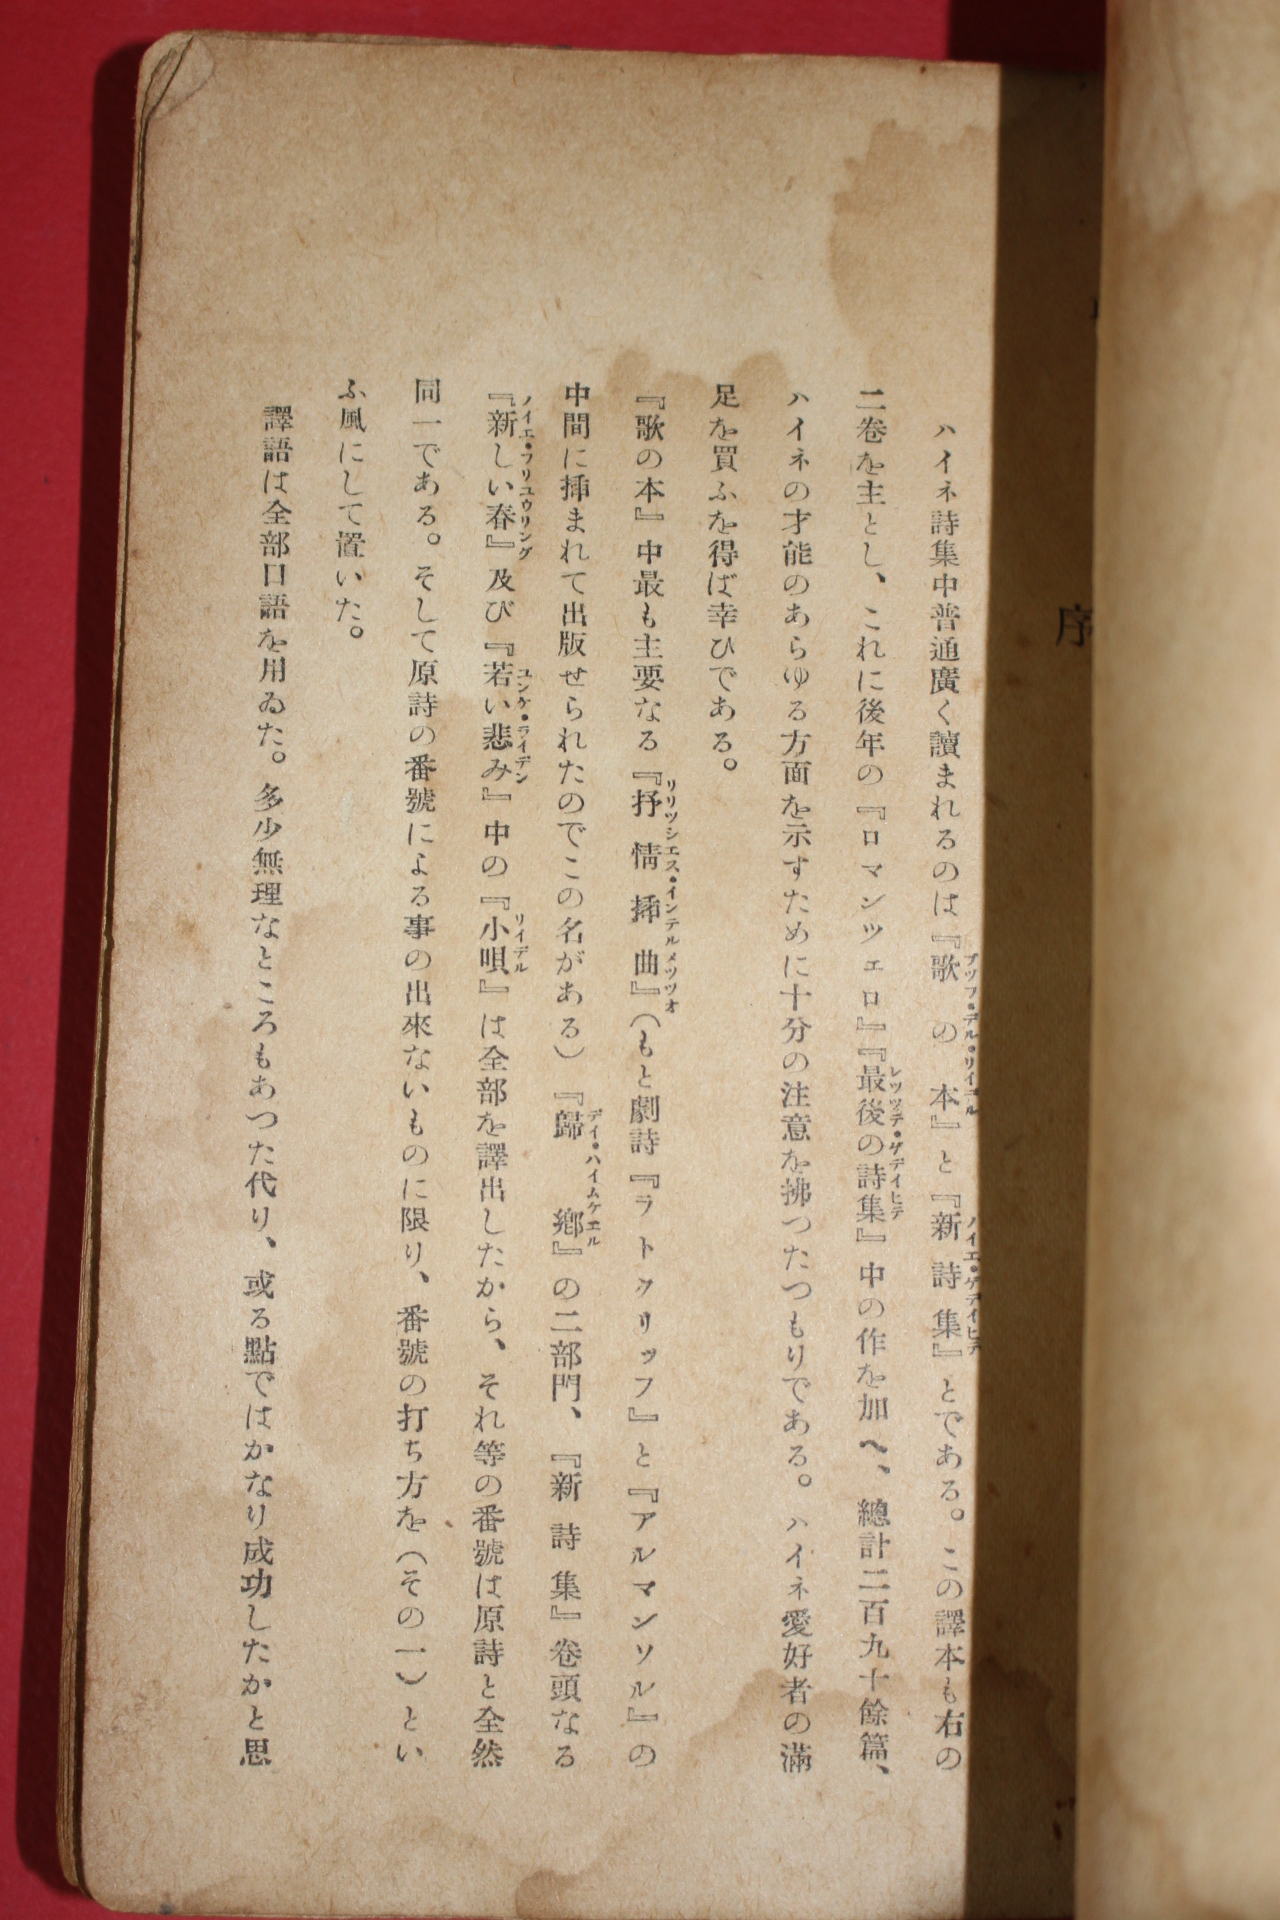 序
ハイネ詩集中普通廣く讀まれるのは『歌の本』と『新詩集』とである。この譯本も右の
ブツフ・デル・リイデル
ノイエ・ゲデイヒテ
二卷を主とし、これに後年の『ロマンツェロ』『最後の詩集』中の作を加へ、總計二百九十餘篇、
レツツテ・ゲデイヒテ
ハイネの才能のあらゆる方面を示すために十分の注意を拂つたつもりである。ハイネ愛好者の滿
足を買ふを得ば幸ひである。
『歌の本』中最も主要なる『抒情揷曲』（もと劇詩『ラトクリッフ』と『アルマンソル』の
リリツシエス・インテルメツツオ
中間に揷まれて出版せられたのでこの名がある）『歸鄕』の二部門、『新詩集』卷頭なる
デイ・ハイムケエル
『新しい春』及び『若い悲み』中の『小唄』は全部を譯出したから、それ等の番號は原詩と全然
ノイエ・フリユウリング
ユンゲ・ライデン
リイデル
同一である。そして原詩の番號による事の出來ないものに限り、番號の打ち方を（その一）とい
ふ風にして置いた。
譯語は全部口語を用ゐた。多少無理なところもあつた代り、或る點ではかなり成功したかと思